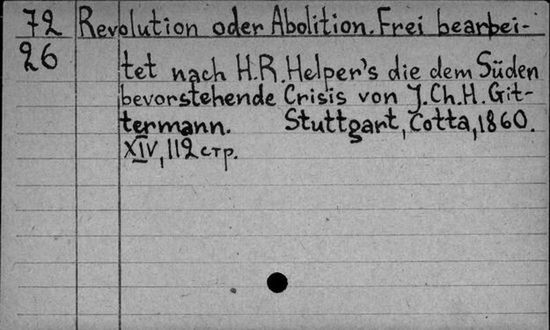 72 Revolution oder Abolition. Frei bearbei-
26 tet nach H.R. Helper's die dem Süden
bevorstehende Crisis von J.Ch.H. Git-
termann. Stuttgart, Cotta, 1860.
XIV, 112 стр.